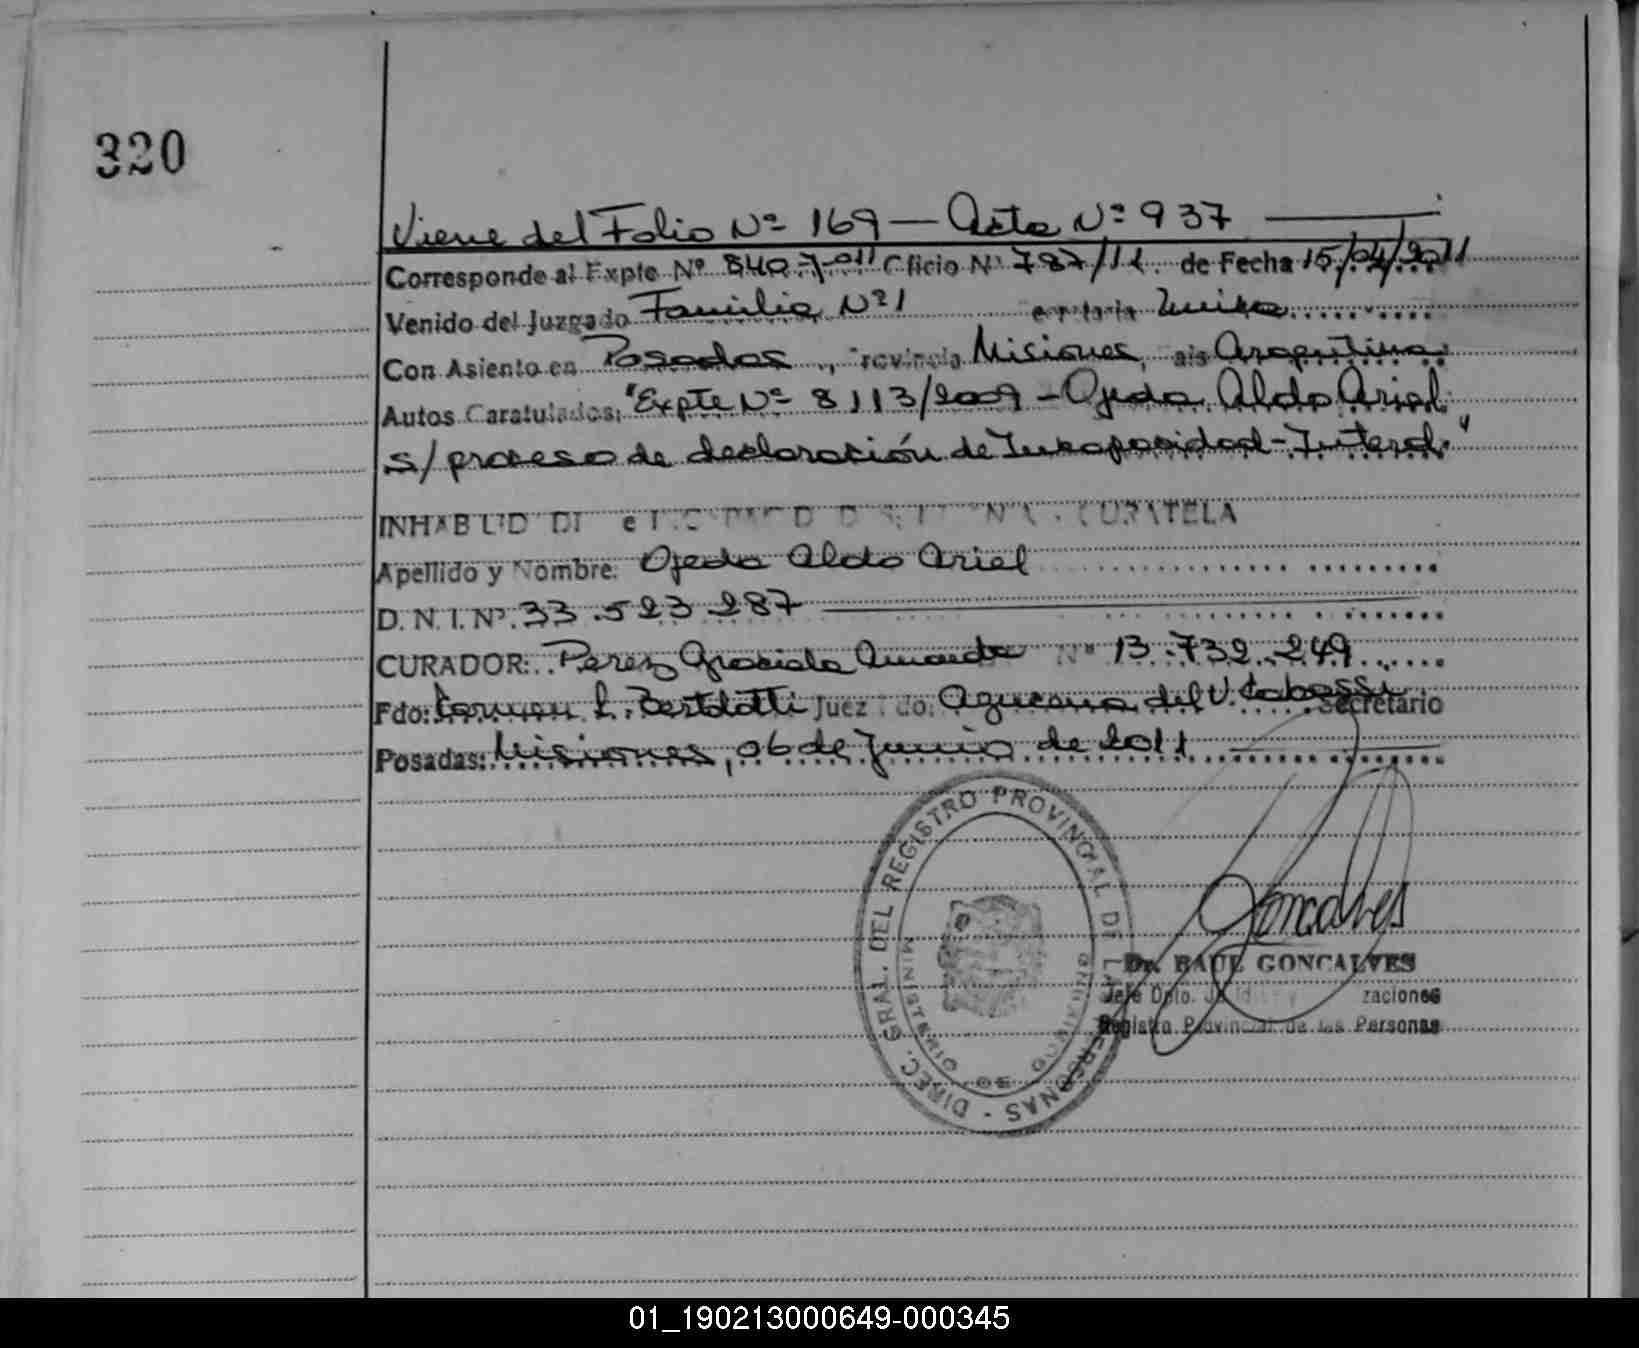 320
Viene del Folio Nº 169 — Acta Nº 937
Corresponde al Expte Nº Oficio Nº 787/11 de Fecha 15/04/2011
Venido del Juzgado Familia Nº 1 Única
Con Asiento en Posadas, Provincia Misiones, Argentina
Autos Caratulados: "Expte Nº 8113/2009 - Ojeda Aldo Ariel
s/ proceso de declaración de Incapacidad - Interd."
CURATELA
Apellido y Nombre: Ojeda Aldo Ariel
D. N. I. Nº 33.523.287
CURADOR: Perez Graciela Nº 13.732.249
Fdo: Carmen L. Bertolotti Juez Fdo. Azucena del V. Secretario
Posadas: Misiones, 06 de Junio de 2011
DIREC. GRAL. DEL REGISTRO PROVINCIAL DE LAS PERSONAS -
MINISTERIO DE GOBIERNO
Goncalves
Dr. RAUL GONCALVES
Jefe Dpto. zaciones
Registro Provincial de las Personas
01_190213000649-000345